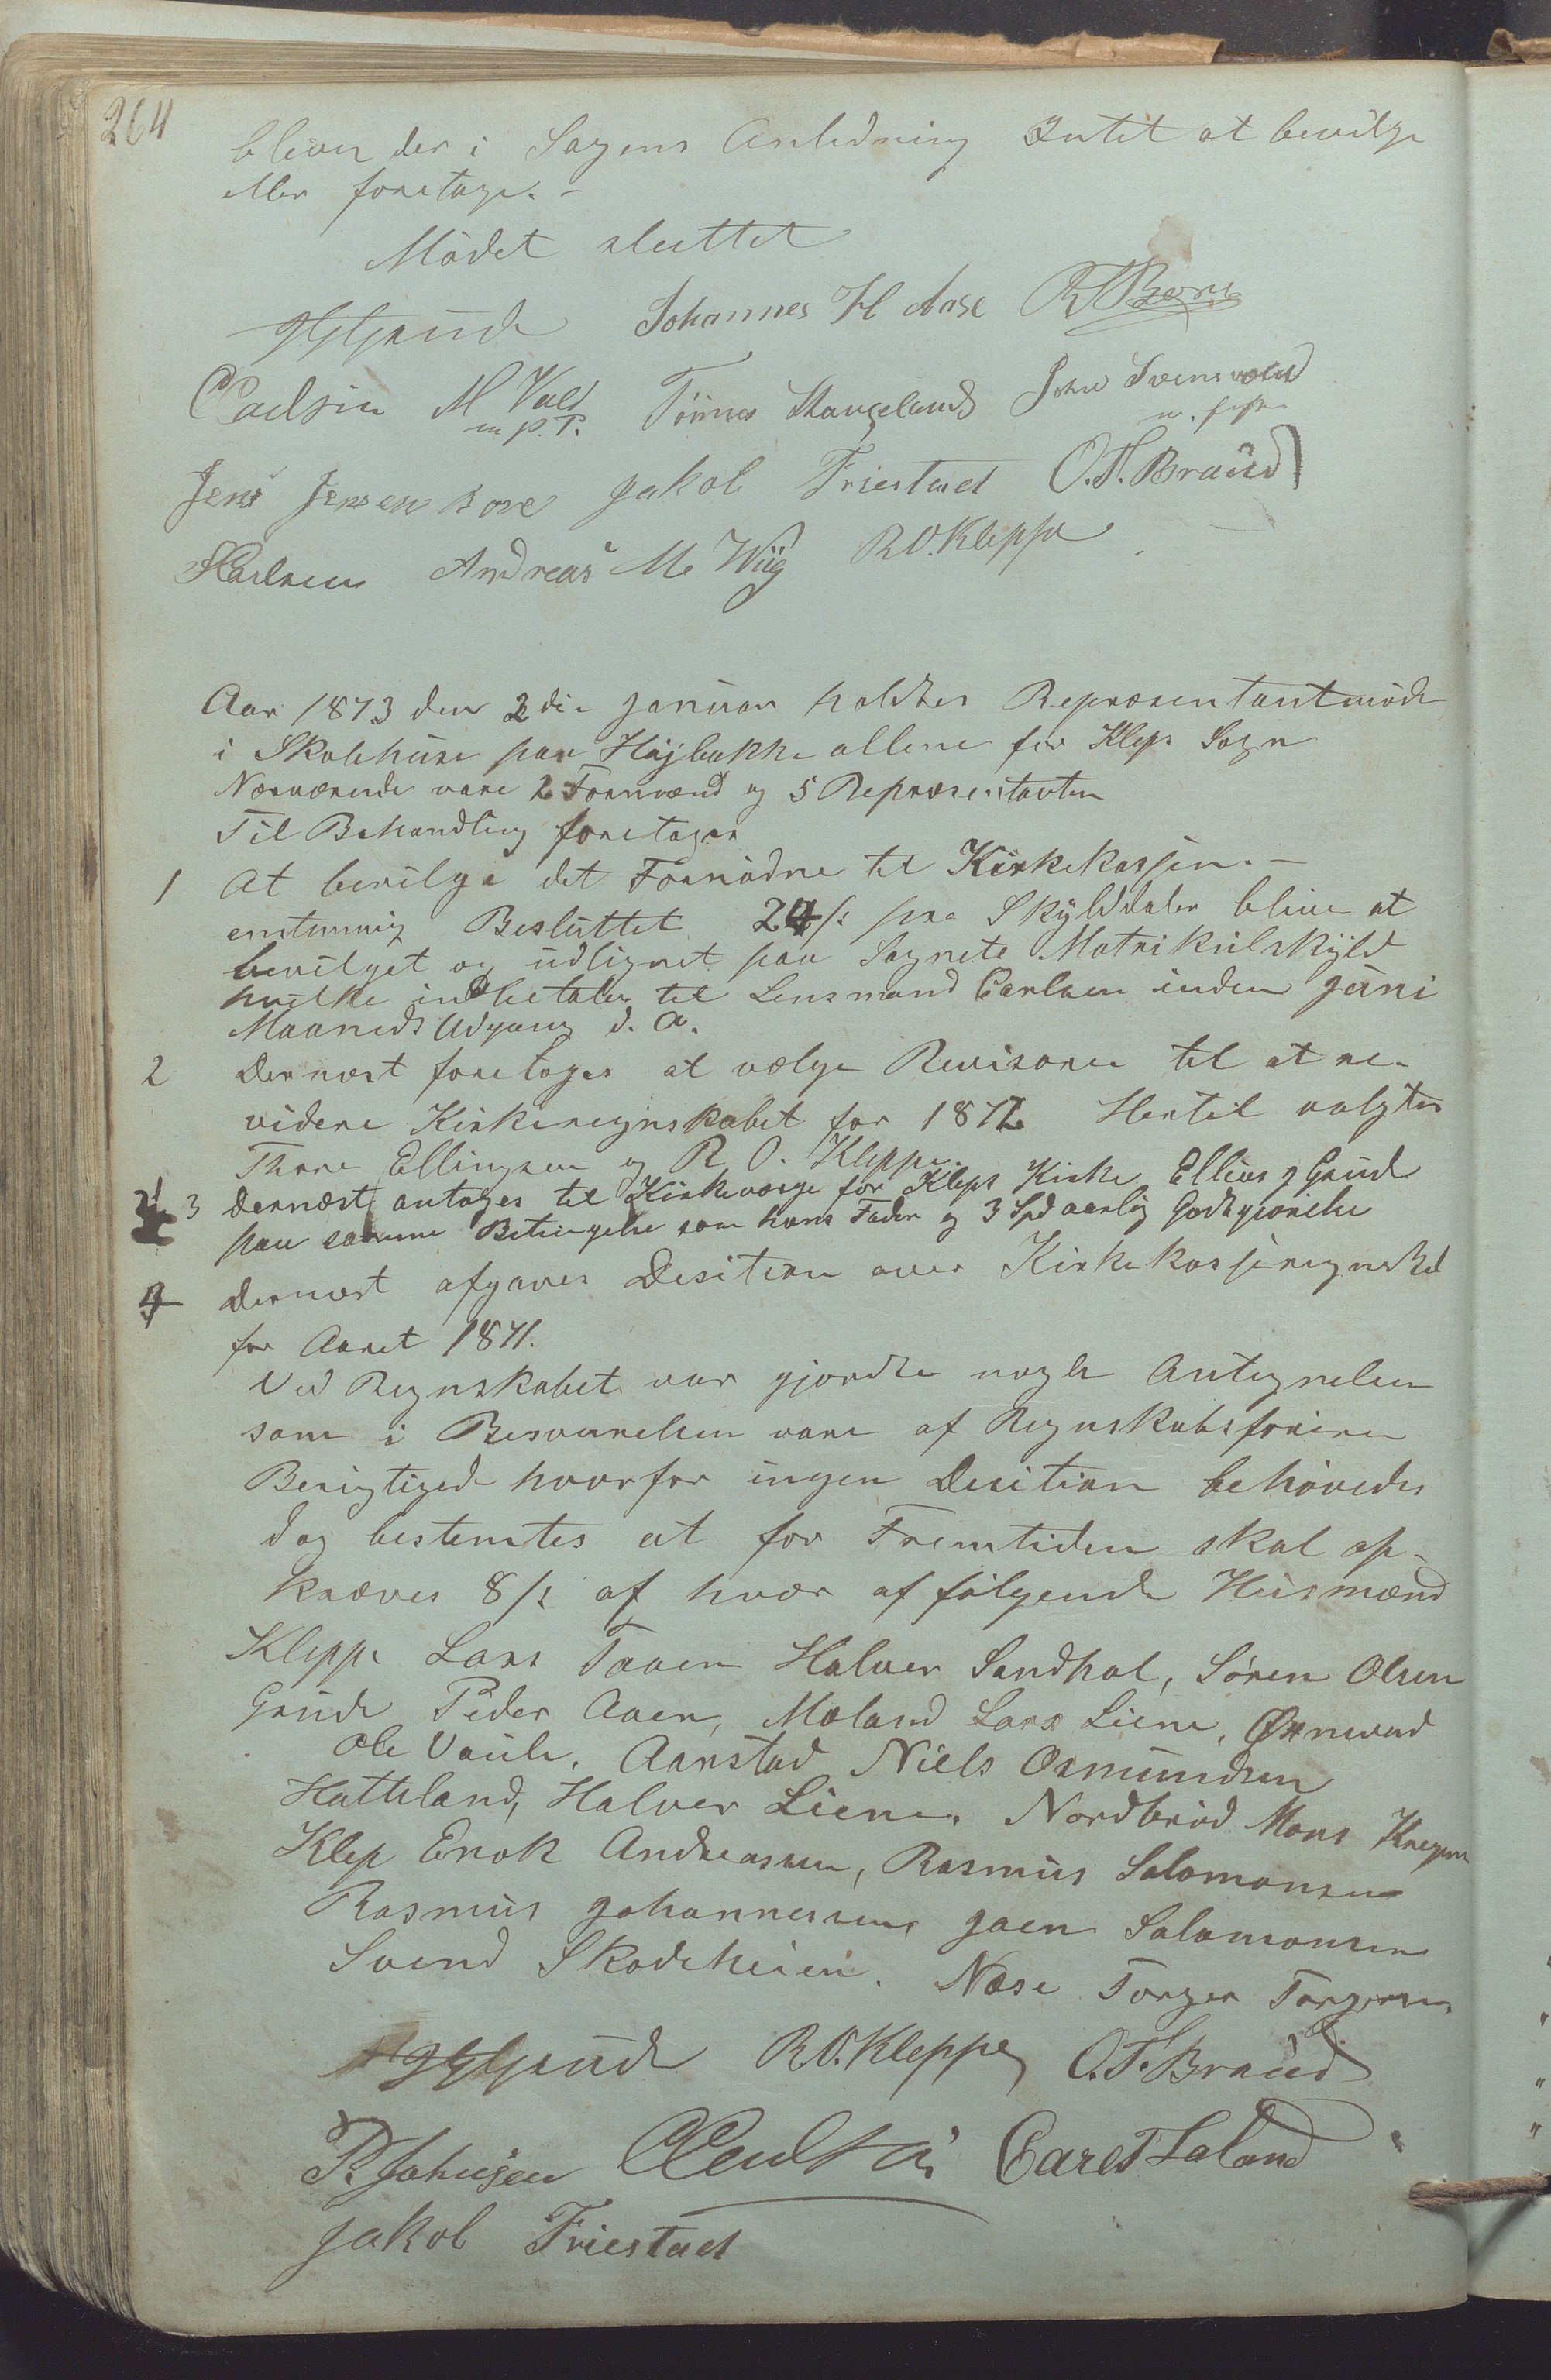 264
bliver der i Sagens Anledning Intet at bevilge
eller foretage. -
Mödet sluttet
Grude Johannes H Aase
M Vold Tönnes Stangeland John
m. p. P.
Jens Jensen Bore Jakob Friestad O. T. Braud
Andreas M. Wiig R O. Kleppe
Aar 1873 den 2die Januar holdtes Repræsentantmöde
i Skolehuse paa Höjbakke allene for Klep Sogn
Nærværende vare 2 Formænd og 5 Repræsentanter
Til Behandling foretoges
1 At bevilge det Fornödne til Kirkekassen. -
enstemmig Besluttet 24 /s pra Skylddaler bliver at
bevilget og udlignet paa Sognets Matrikulskyld
hvilke indbetales til Lensmand Carlsen inden Juni
Maaneds Udgang d. A.
2 Dernæst foretoges at vælge Revisorer til at re-
videre Kirkeregnskabet for 1872 Hertil valgtes
Thore Ellingsen og R O. Kleppe.
3 dernæst antoges til Kirkeværge for Kleps Kirke Ellias J Grude
paa samme Betingelse som hans Fader og 3 Spd aarlig Godtgiörelse
4 Dernæst afgaves Desition over Kirkekasseregnskab
for Aaret 1871.
Ved Regnskabet var gjordte nogle Antegnelser
som i Besvarelsen vare af Regnskabsföreren
Berigtiged hvorfor ingen Desition behövedes
dog bestemtes at for Fremtiden skal op-
kræves 8 /s af hver af fölgende Husmænd
Kleppe Lars Taaen Halver Sandhol, Sören Olsen
Grude Peder Aaen, Moland Lars Liene, Öxnevad
Ole Vaule. Aarstad Niels Osmundsen
Hatteland, Halver Liene. Nordbröd Mons
Klep Enok Andreassen, Rasmus Salomonsen
Rasmus Johannessen, Joen Salomonsen
Svend Skodeheien. Næse Torger Torgersen
Grude R O. Kleppe O. T. Braud
P. Johnsen Carl T Laland
Jakob Friestad